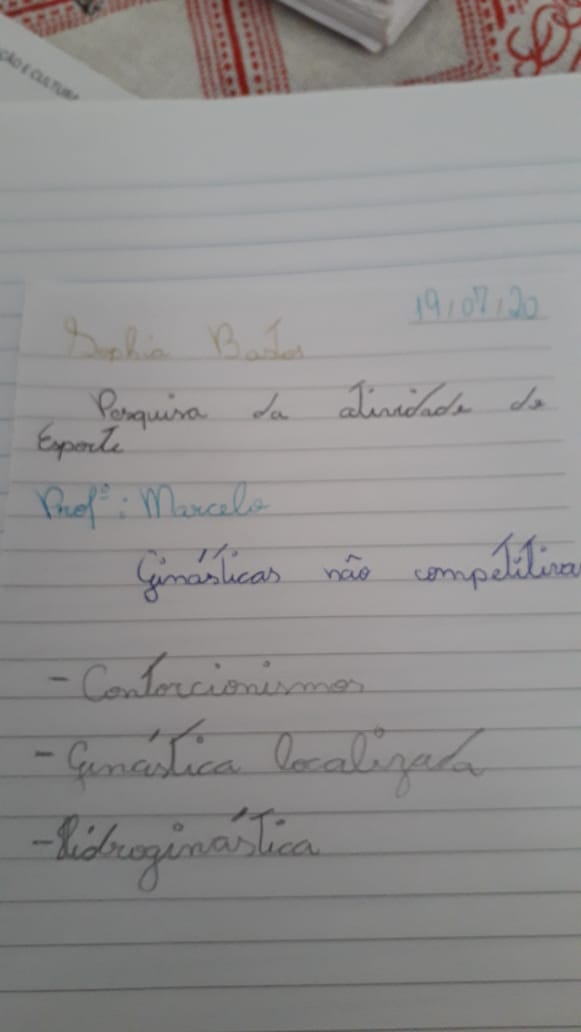 ÇÃO E CULTURA
19/07/20
Sophia Bastos
Pesquisa da atividade de
Esporte
Profº: Marcelo
Ginásticas não competitiva
- Contorcionismos
- Ginástica localizada
- Hidroginástica